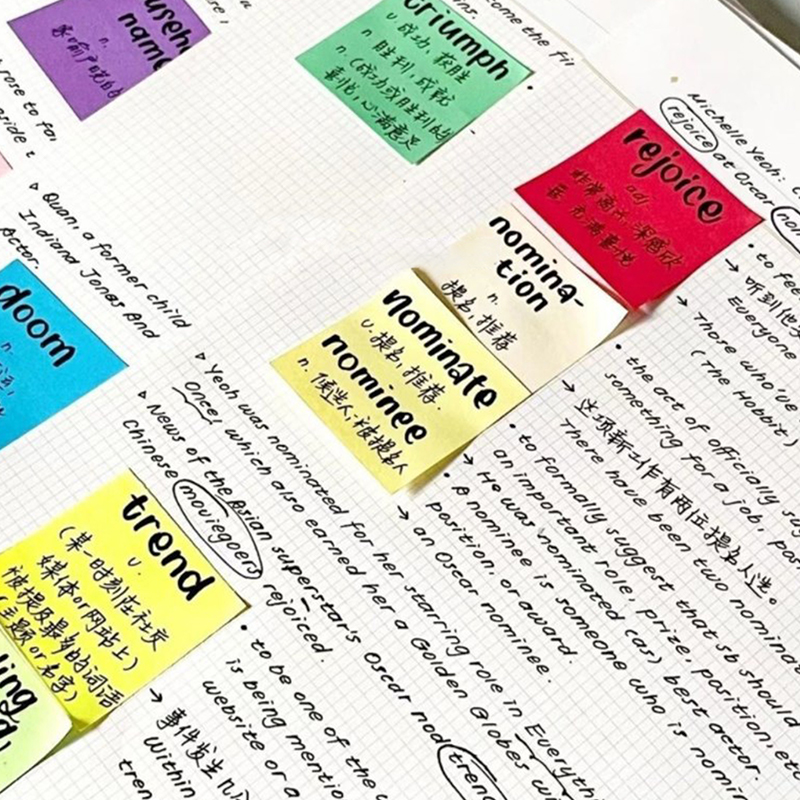 n.
triumph
v. 成功, 获胜
n 胜利, 成就
n. (成功或胜利的
喜悦, 心满意足
come the
rose to
Michelle Yeoh:
rejoice at Oscar
rejoice
adj
nomina-
tion
n.
提名, 推荐
Nominate
v. 提名, 推荐.
nominee
n. 候选人, 被提名人
Quan, a former child
Indiand Jones And
Actor.
doom
n.
Yeoh was nominated for her starring role in Everyth
Once, which also earned her a Golden Globes
News of the Asian superstar's Oscar nod
Chinese moviegoers rejoiced.
trend
v.
(某一时刻在社交
媒体or网站上)
被提及最多的词语
(主题or名字)
to be one of the
is being mentio
website or a
事件发生
Within
tren
to fee
听到他
Everyone
Those who've
(The Hobbit)
the act of officially sug
something for a job, pos
这项新工作有两位提名人选。
There have been two nominat
to formally suggest that sb should
an important role, prize, position, etc
He was nominated (as) best actor.
A nominee is someone who is nomin
position, or award.
an Oscar nominee.